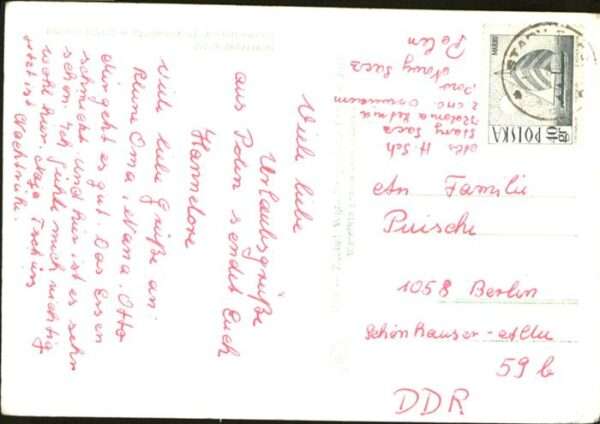 Viele liebe
Urlaubsgrüße
aus Polen sendet Euch
Hannelore
Viele liebe Grüße an
Kleine Oma, Nana, Otto
Mir geht es gut. Das Essen
schmeckt und hier ist es sehr
schön. Ich fühle mich richtig
wohl hier.
Jetzt ist Nachtruhe.
H. Sch
Stary Sącz
Kolonia Letnia
Pow
Nowy Sącz
Polen
POLSKA
STARY
An Familie
Puische
1058 Berlin
Schönhauser-Allee
59 b
DDR